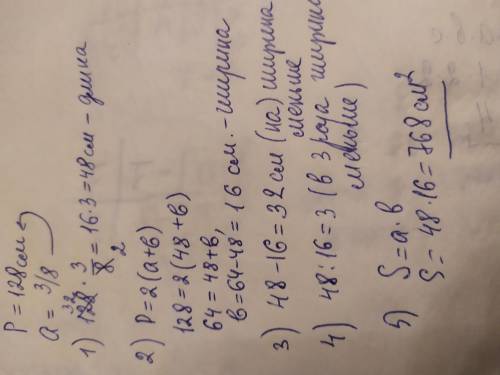 P = 128 см
a = 3/8
1) 128 · 3/8 = 16·3 = 48 см - длина
32
2
2) P = 2(a+b)
128 = 2(48+b)
64 = 48+b,
b = 64-48 = 16 см. - ширина
3) 48-16 = 32 см (на) ширина
меньше
4) 48:16 = 3 (в 3 раза ширина
меньше)
5) S = a·b
S = 48·16 = 768 см²